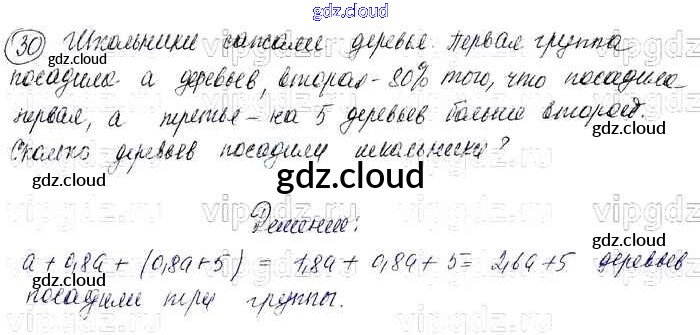 gdz.cloud
(30) Школьники сажали деревья. Первая группа
посадила a деревьев, вторая - 80% того, что посадила
первая, а третья - на 5 деревьев больше второй.
Сколько деревьев посадили школьники?
gdz.cloud
Решение:
a + 0,8a + (0,8a + 5) = 1,8a + 0,8a + 5 = 2,6a + 5 деревьев
посадили три группы.